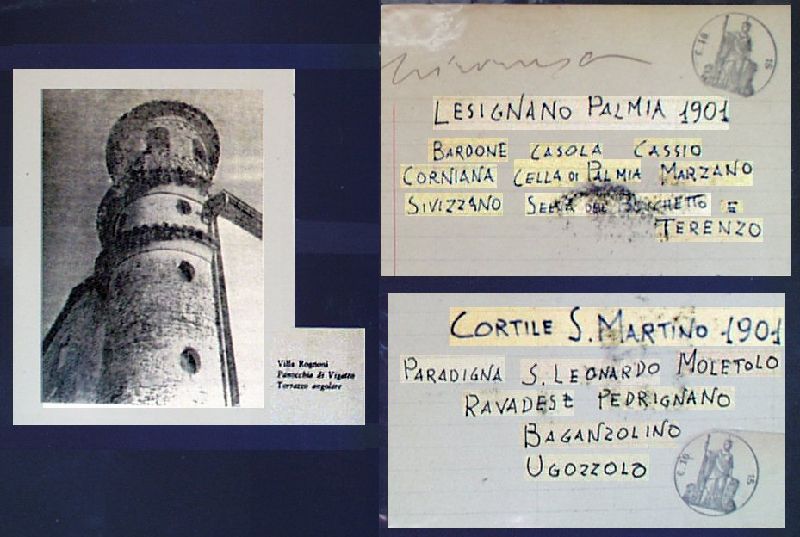 Villa Rognoni
Panocchia di Vigatto
Terrazzo angolare
LESIGNANO PALMIA 1901
BARDONE CASOLA CASSIO
CORNIANA CELLA DI PALMIA MARZANO
SIVIZZANO SELVA DEL BOCCHETTO E
TERENZO
CORTILE S. MARTINO 1901
PARADIGNA S. LEONARDO MOLETOLO
RAVADESE PEDRIGNANO
BAGANZOLINO
UGOZZOLO
C. 10
15
C. 10
15